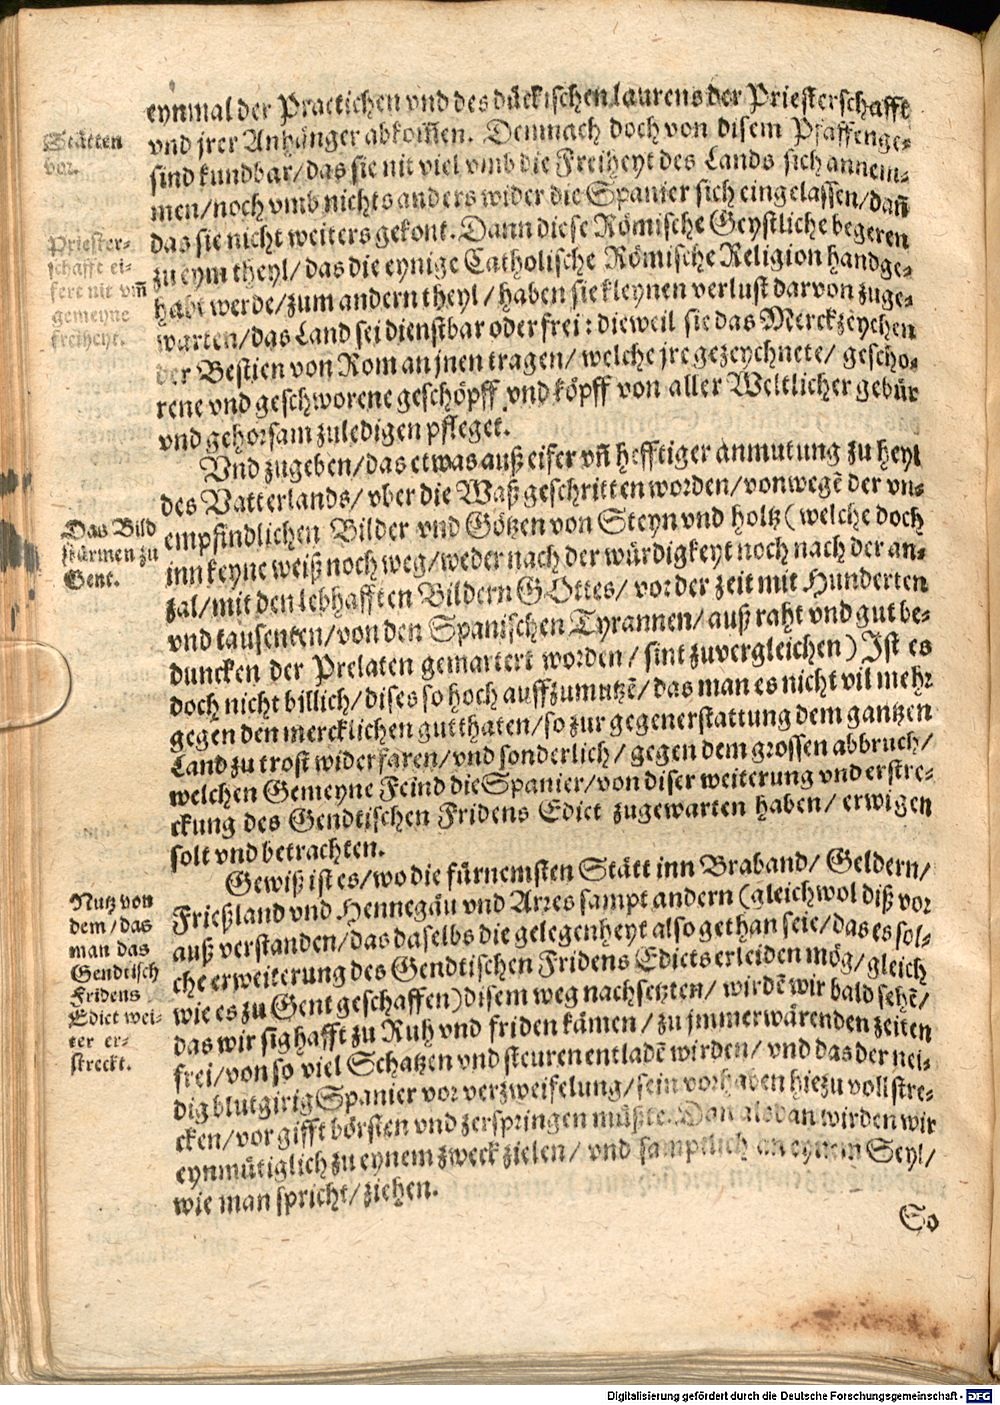 eynmal der Practichen vnd des dückischen laurens der Priesterschafft
vnd jrer Anhänger abkom̃en. Demnach doch von disem Pfaffenge-
sind kundbar/ das sie nit viel vmb die Freiheyt des Lands sich annem-
men/ noch vmb nichts anders wider die Spanier sich eingelassen/ dañ
das sie nicht weiters gekont. Dann diese Römische Geystliche begeren
zu eym theyl/ das die eynige Catholische Römische Religion handge-
habt werde/ zum andern theyl/ haben sie kleynen verlust darvon zuge-
warten/ das Land sei dienstbar oder frei: dieweil sie das Merckzeychen
der Bestien von Rom an jnen tragen/ welche jre gezeychnete/ gescho-
rene vnd geschworene geschöpff vnd köpff von aller Weltlicher gebür
vnd gehorsam zuledigen pfleget.
Stätten
vor.
Priester-
schafft ei-
fert nit vm̃
gemeyne
freiheyt.
Vnd zugeben/ das etwas auß eifer vñ hefftiger anmutung zu heyl
des Vatterlands/ vber die Maß geschritten worden/ von wegẽ der vn-
empfindlichen Bilder vnd Götzen von Steyn vnd holtz (welche doch
inn keyne weiß noch weg/ weder nach der würdigkeyt noch nach der an-
zal/ mit den lebhafften Bildern GOttes/ vor der zeit mit Hunderten
vnd tausenten/ von den Spanischen Tyrannen/ auß raht vnd gut be-
duncken der Prelaten gemartert worden/ sint zuvergleichen) Ist es
doch nicht billich/ dises so hoch auffzumutzẽ/ das man es nicht vil mehr
gegen den mercklichen gutthaten/ so zur gegenerstattung dem gantzen
Land zu trost widerfaren/ vnd sonderlich/ gegen dem grossen abbruch/
welchen Gemeyne Feind die Spanier/ von diser weiterung vnd erstre-
ckung des Gendtischen Fridens Edict zugewarten haben/ erwigen
solt vnd betrachten.
Das Bild
stürmen zu
Gent.
Gewiß ist es/ wo die fürnemsten Stätt inn Braband/ Geldern/
Frießland vnd Hennegäu vnd Arres sampt andern (gleichwol diß vor
auß verstanden/ das daselbs die gelegenheyt also gethan seie/ das es sol-
che erweiterung des Gendtischen Fridens Edicts erleiden mög/ gleich
wie es zu Gent geschaffen) disem weg nachsetzten/ wirdẽ wir bald sehẽ/
das wir sighafft zu Ruh vnd friden kämen/ zu jmmerwärenden zeiten
frei/ von so viel Schatzen vnd steuren entladẽ wirden/ vnd das der nei-
dig blutgirig Spanier vor verzweifelung/ sein vorhaben hiezu vollstre-
cken/ vor gifft börsten vnd zerspringen müßte. Dan alsdan wirden wir
eynmütiglich zu eynem zweck zielen/ vnd samptlich an eynem Seyl/
wie man spricht/ ziehen.
Nutz von
dem/ das
man das
Gendtisch
Fridens
Edict wei-
ter er-
streckt.
So
Digitalisierung gefördert durch die Deutsche Forschungsgemeinschaft - DFG